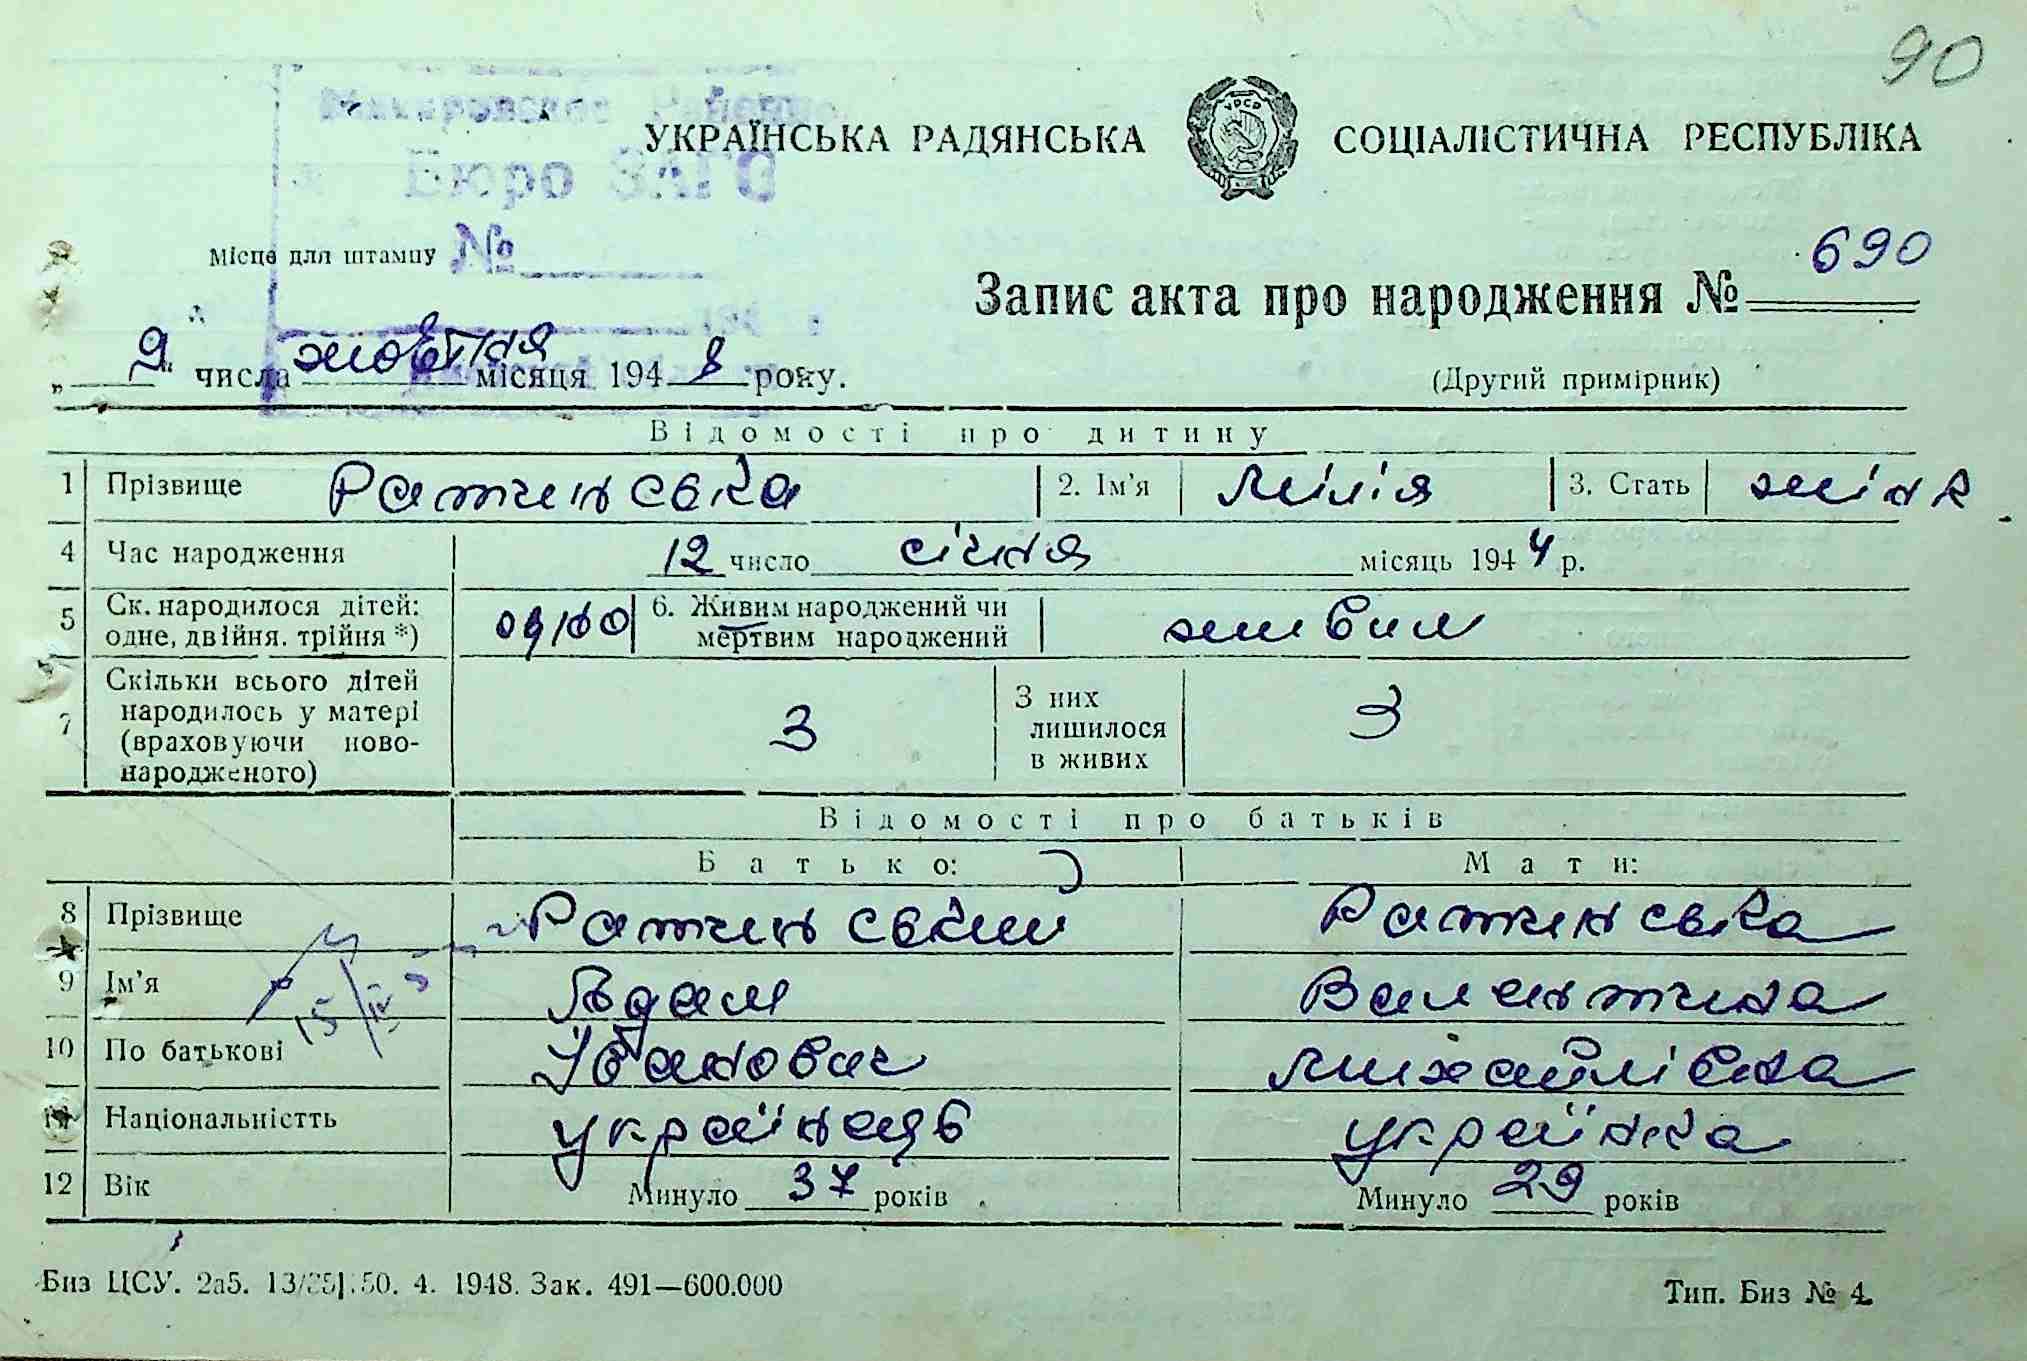 90
Макаровское Районное
УКРАЇНСЬКА РАДЯНСЬКА СОЦІАЛІСТИЧНА РЕСПУБЛІКА
УРСР
Бюро ЗАГС
Місце для штампу №
Запис акта про народження № 690
„ 9 " числа жовтня місяця 1948 року.
(Другий примірник)
Відомості про дитину
1 Прізвище Ратинська 2. Ім'я Лілія 3. Стать жін
4 Час народження 12 число січня місяць 1944 р.
5 Ск. народилося дітей: одне, двійня. трійня *) одно 6. Живим народжений чи мертвим народжений живим
7 Скільки всього дітей народилось у матері (враховуючи ново-народженого) 3 З них лишилося в живих 3
Відомості про батьків
Батько: Мати:
8 Прізвище Ратинський Ратинська
9 Ім'я Адам Валентина
10 По батькові Іванович Михайлівна
11 Національністть українець українка
12 Вік Минуло 37 років Минуло 29 років
Биз ЦСУ. 2а5. 13/25|.50. 4. 1948. Зак. 491—600.000
Тип. Биз № 4.